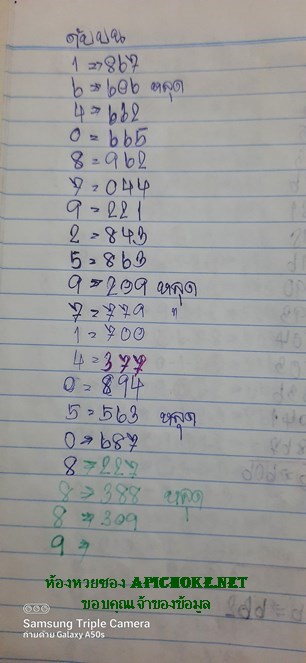 ดับบน
1 => 867
6 => 606 หลุด
4 = 662
0 = 665
8 = 962
7 = 044
9 = 221
2 = 843
5 = 863
9 = 209 หลุด
7 = 779 "
1 = 700
4 = 377
0 = 894
5 = 563 หลุด
0 => 687
8 => 227
8 => 388 หลุด
8 => 309
9 =>
ห้องหวยซอง APICHOKE.NET
ขอบคุณเจ้าของข้อมูล
Samsung Triple Camera
ถ่ายด้วย Galaxy A50s